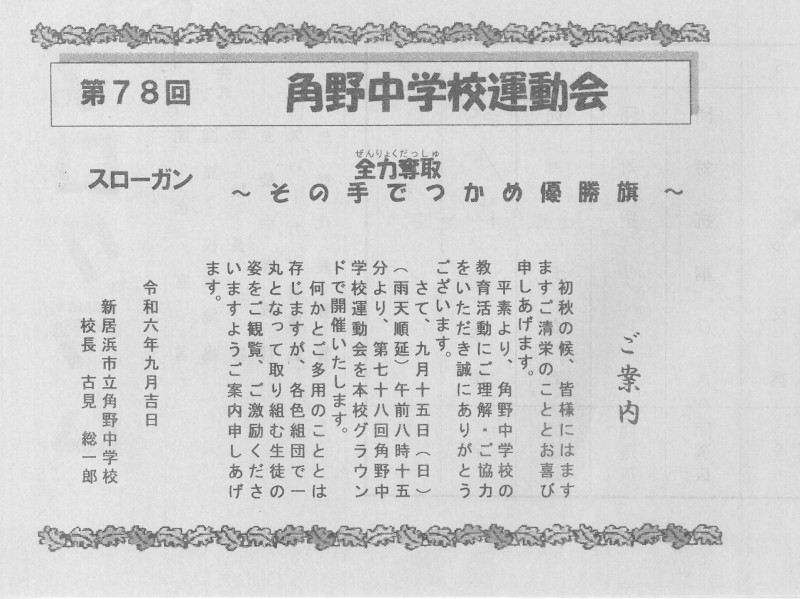 第７８回 角野中学校運動会
スローガン
ぜんりょくだっしゅ
全力奪取
～その手でつかめ優勝旗～
ご案内
初秋の候、皆様にはます
ますご清栄のこととお喜び
申しあげます。
平素より、角野中学校の
教育活動にご理解・ご協力
をいただき誠にありがとう
ございます。
さて、九月十五日（日）
（雨天順延）午前八時十五
分より、第七十八回角野中
学校運動会を本校グラウン
ドで開催いたします。
何かとご多用のこととは
存じますが、各色組団で一
丸となって取り組む生徒の
姿をご観覧、ご激励くださ
いますようご案内申しあげ
ます。
令和六年九月吉日
新居浜市立角野中学校
校長 古見 総一郎